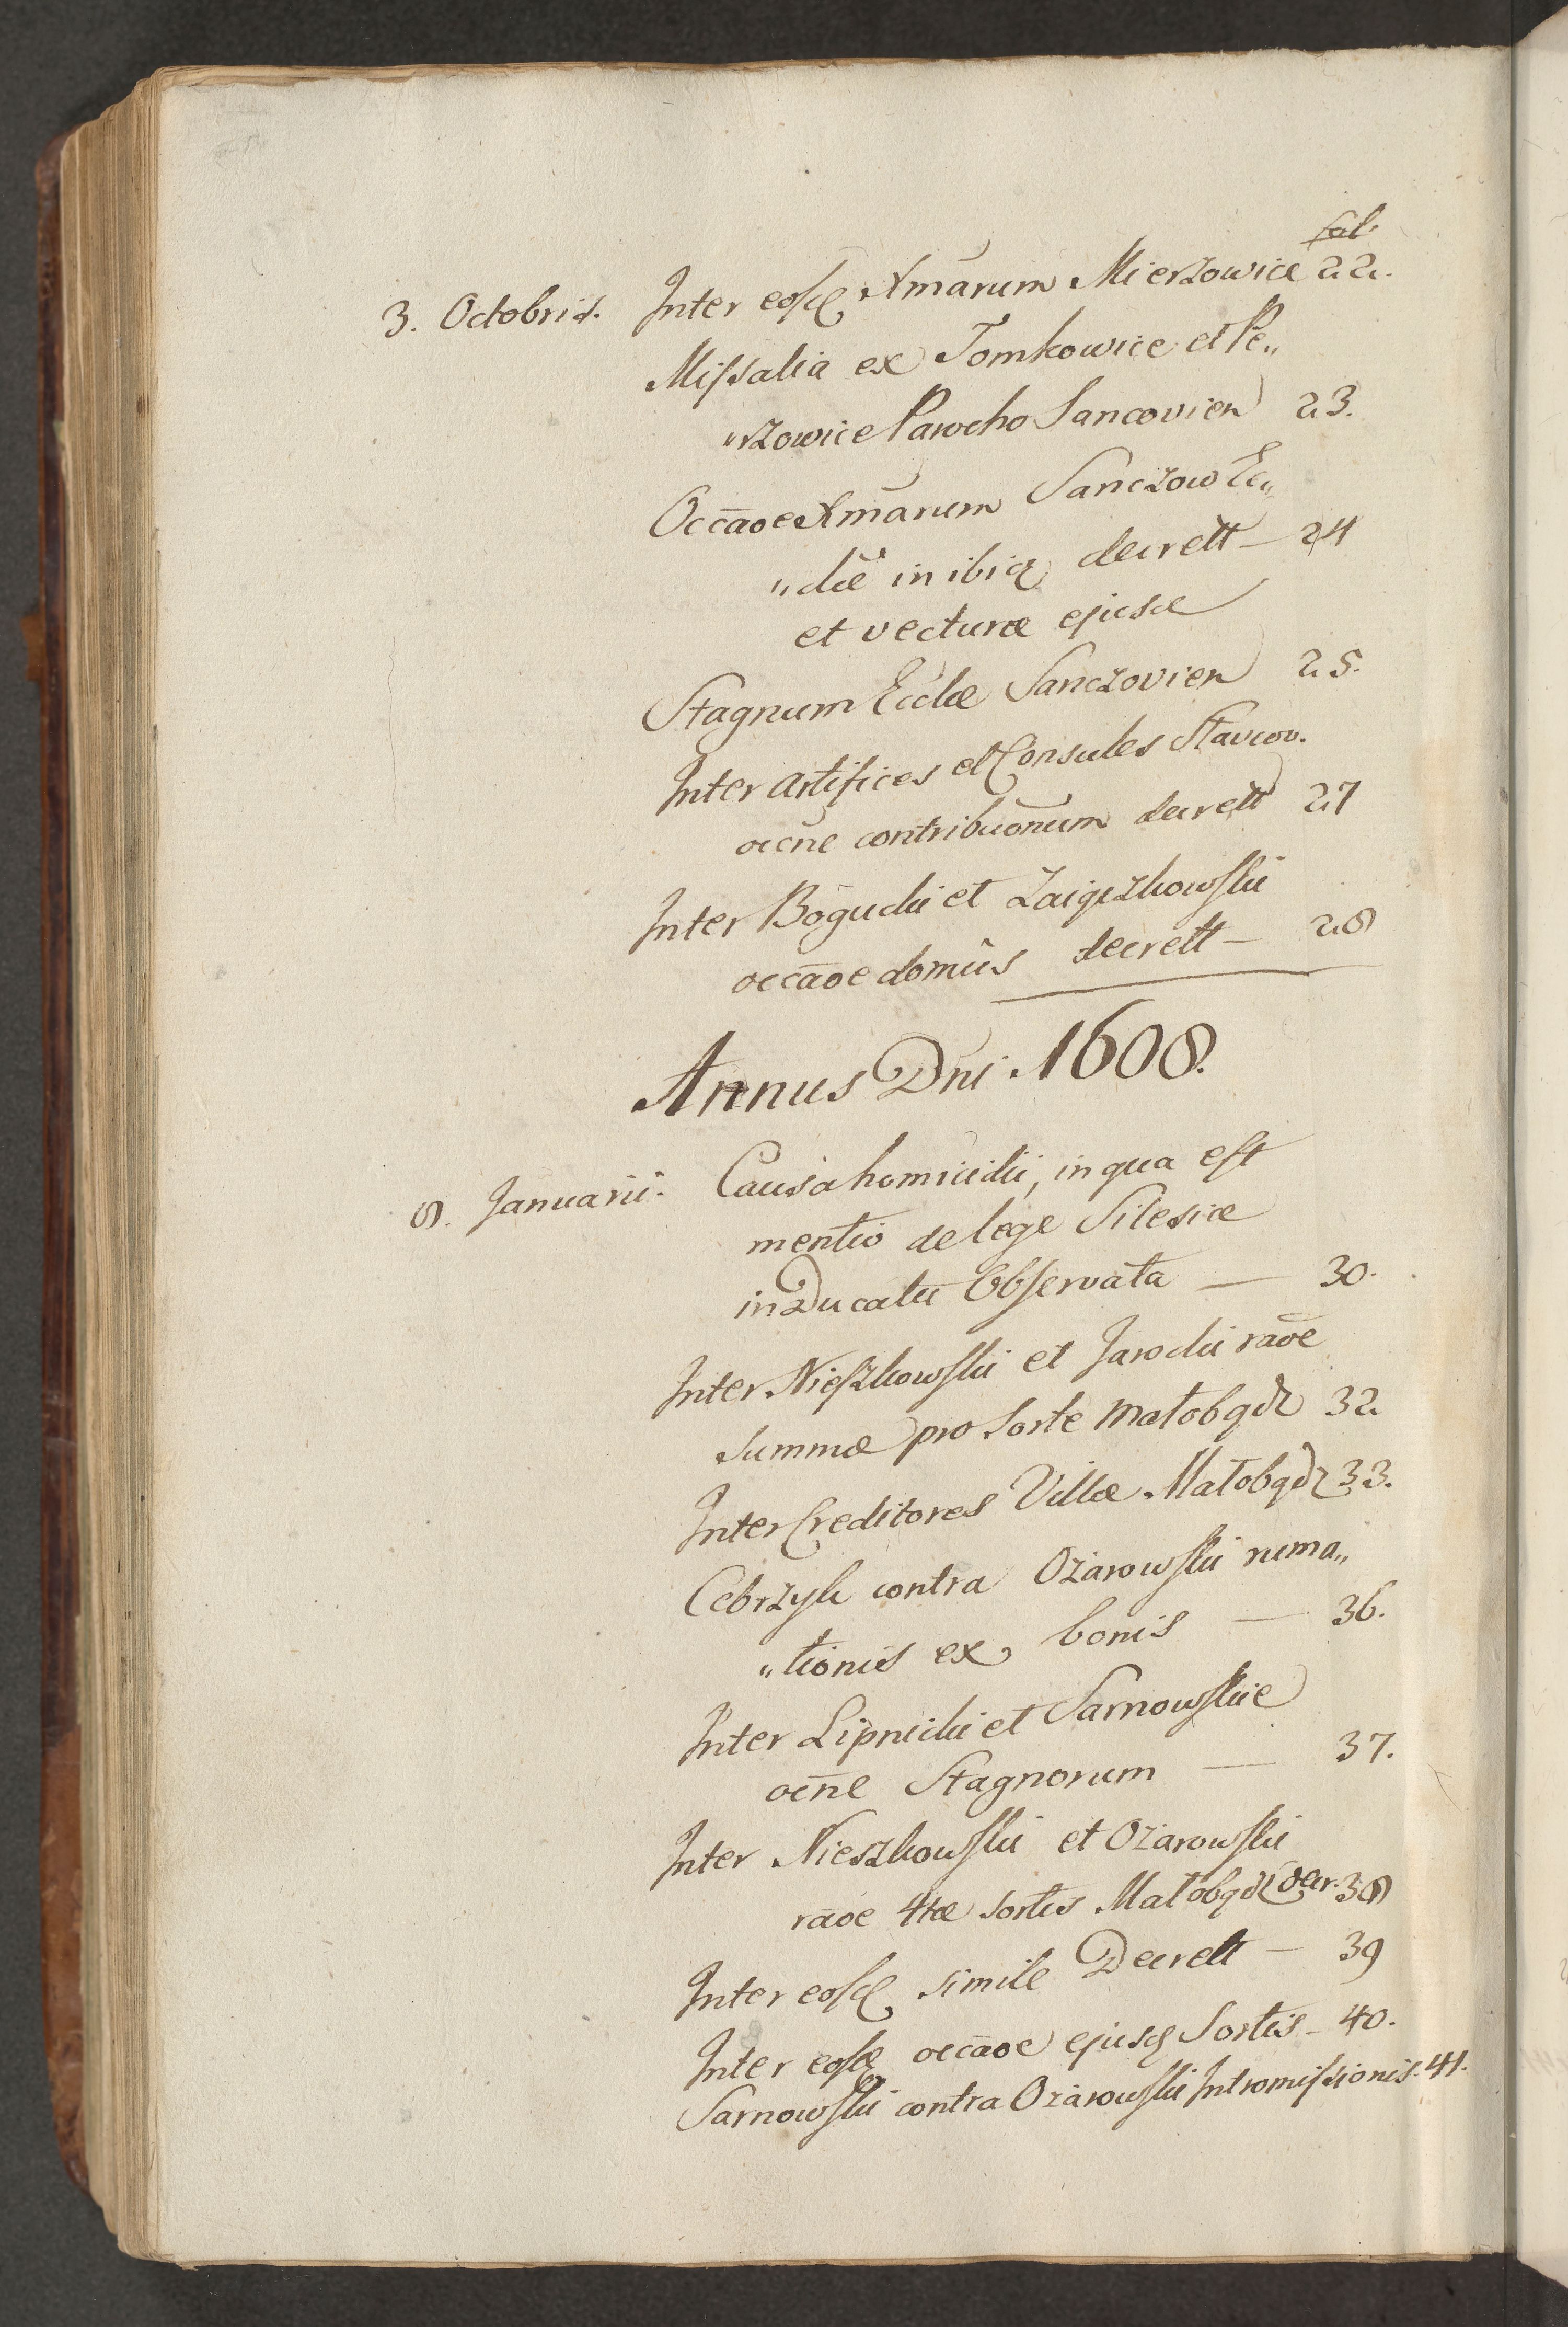 fol.
3. Octobris. Inter eosd Xmarum Mierzowice 22.
Missalia ex Tomkowice et Pe„
„rzowice Parocho Sancovien 23.
Occāoe Xmārum Sanczow Ec„
„clæ in ibid decrett — 24
et vecturæ ejusd
Stagnum Ecclæ Sanczovien 25.
Inter artifices et Consules Slavcov.
occne contribuōnum decrett 27
Inter Bogucki et
occāoe domûs decrett — 28
Annus Dni 1608.
8. Januarii. Causa homicidii, in qua est
mentio de lege Silesiæ
in Ducatu Observata — 30.
Inter Nieszkowski et Jarocki raōe
summæ pro Sorte Małobądz 32
Inter Creditores Villæ Małobądz 33.
Cebrzyk contra Ożarowski ruma„
„tionis ex bonis — 36.
Inter Lipnicki et Sarnowskie
occne Stagnorum — 37.
Inter Nieszkowski et Ożarowski
rāoe 4tæ sortis Małobądz decr. 38
Inter eosd simile Decrett — 39
Inter eosd occāoe ejusd Sortis — 40.
Sarnowski contra Ożarowski Intromissionis. 41.